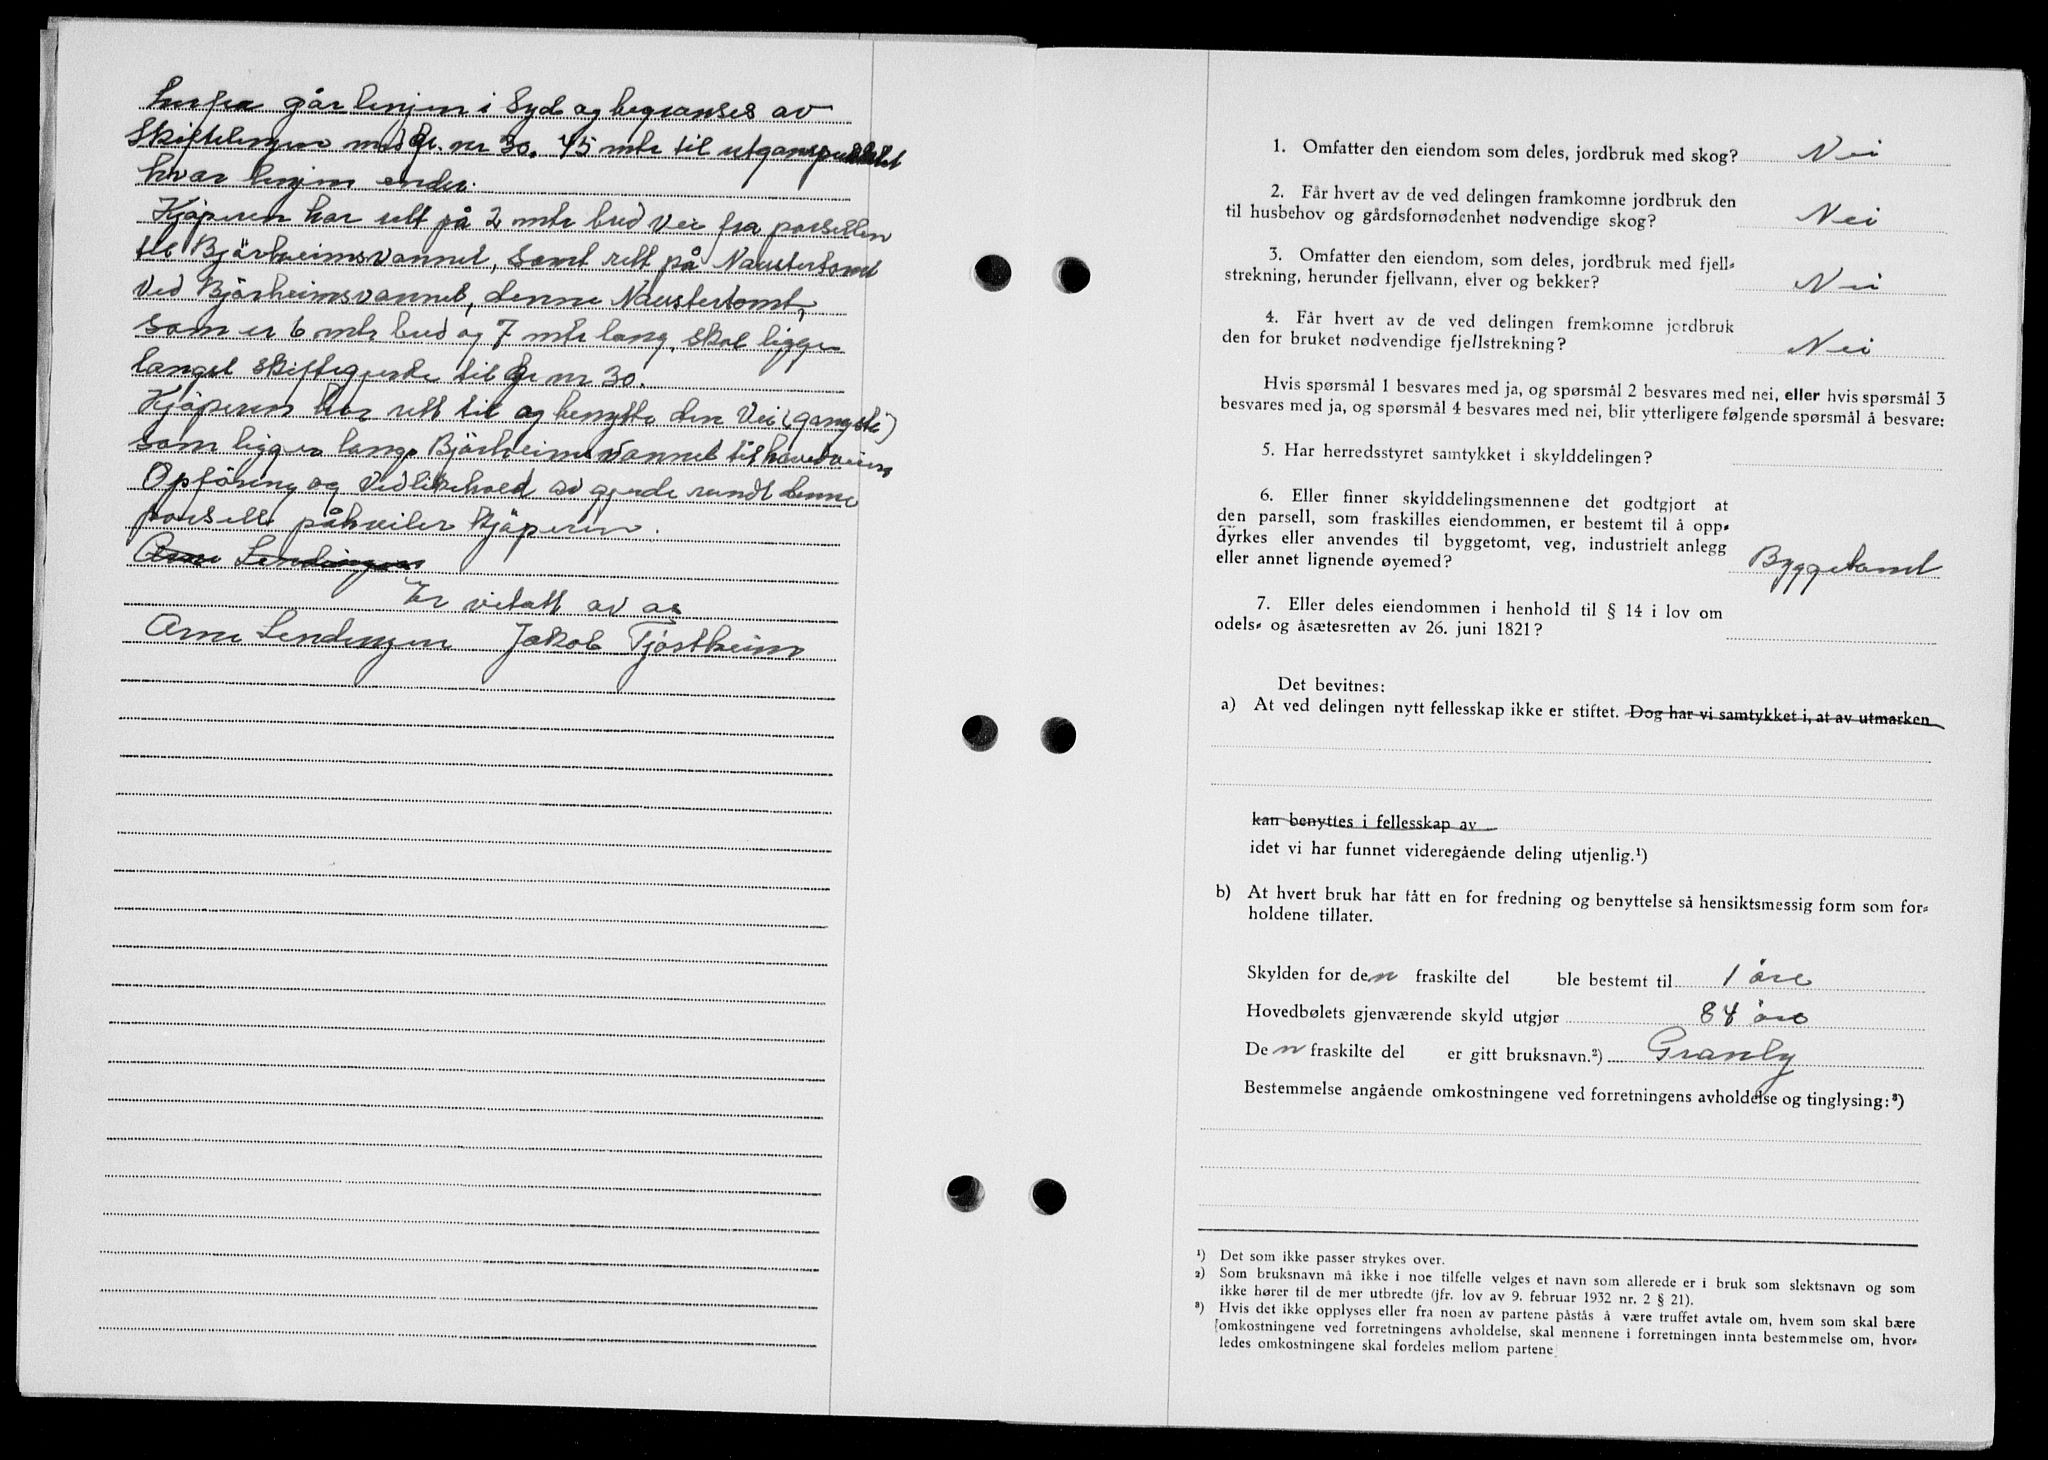 herfra går linjen i Syd og begranses av
Skiftelinjen med Gr. nr 30. 45 mtr til utganspunktet
hvor linjen ender.
Kjøperen har rett på 2 mtr bred Vei fra parsellen
til Bjårheimsvannet, samt rett på Naustertomt
Ved Bjårheimsvannet, denne Naustertomt,
som er 6 mtr bred og 7 mtr lang, skal ligge
langst skiftegjerde til Gr nr 30.
Kjøperen har rett til og benytte den Vei (gangsti)
som ligger langs Bjårheimsvannet til hovedveien
Opføring og Vedlikehold av gjerde rundt denne
parsell påhviler kjøperen.
Arne Lendingen
Er vitatt av os
Arne Lendingen Jakob Tjøstheim
1. Omfatter den eiendom som deles, jordbruk med skog? Nei
2. Får hvert av de ved delingen framkomne jordbruk den
til husbehov og gårdsfornødenhet nødvendige skog? Nei
3. Omfatter den eiendom, som deles, jordbruk med fjell-
strekning, herunder fjellvann, elver og bekker? Nei
4. Får hvert av de ved delingen fremkomne jordbruk
den for bruket nødvendige fjellstrekning? Nei
Hvis spørsmål 1 besvares med ja, og spørsmål 2 besvares med nei, eller hvis spørsmål 3
besvares med ja, og spørsmål 4 besvares med nei, blir ytterligere følgende spørsmål å besvare:
5. Har herredsstyret samtykket i skylddelingen?
6. Eller finner skylddelingsmennene det godtgjort at
den parsell, som fraskilles eiendommen, er bestemt til å opp-
dyrkes eller anvendes til byggetomt, veg, industrielt anlegg
eller annet lignende øyemed? Byggetomt
7. Eller deles eiendommen i henhold til § 14 i lov om
odels- og åsætesretten av 26. juni 1821?
Det bevitnes:
a) At ved delingen nytt fellesskap ikke er stiftet. Dog har vi samtykket i, at av utmarken
kan benyttes i fellesskap av
idet vi har funnet videregående deling utjenlig.¹)
b) At hvert bruk har fått en for fredning og benyttelse så hensiktsmessig form som for-
holdene tillater.
Skylden for den fraskilte del ble bestemt til 1 öre
Hovedbølets gjenværende skyld utgjør 84 öre
Den fraskilte del er gitt bruksnavn.²) Granly
Bestemmelse angående omkostningene ved forretningens avholdelse og tinglysing:³)
¹) Det som ikke passer strykes over.
²) Som bruksnavn må ikke i noe tilfelle velges et navn som allerede er i bruk som slektsnavn og som
ikke hører til de mer utbredte (jfr. lov av 9. februar 1932 nr. 2 § 21).
³) Hvis det ikke opplyses eller fra noen av partene påstås å være truffet avtale om, hvem som skal bære
omkostningene ved forretningens avholdelse, skal mennene i forretningen innta bestemmelse om, hvor-
ledes omkostningene skal fordeles mellom partene